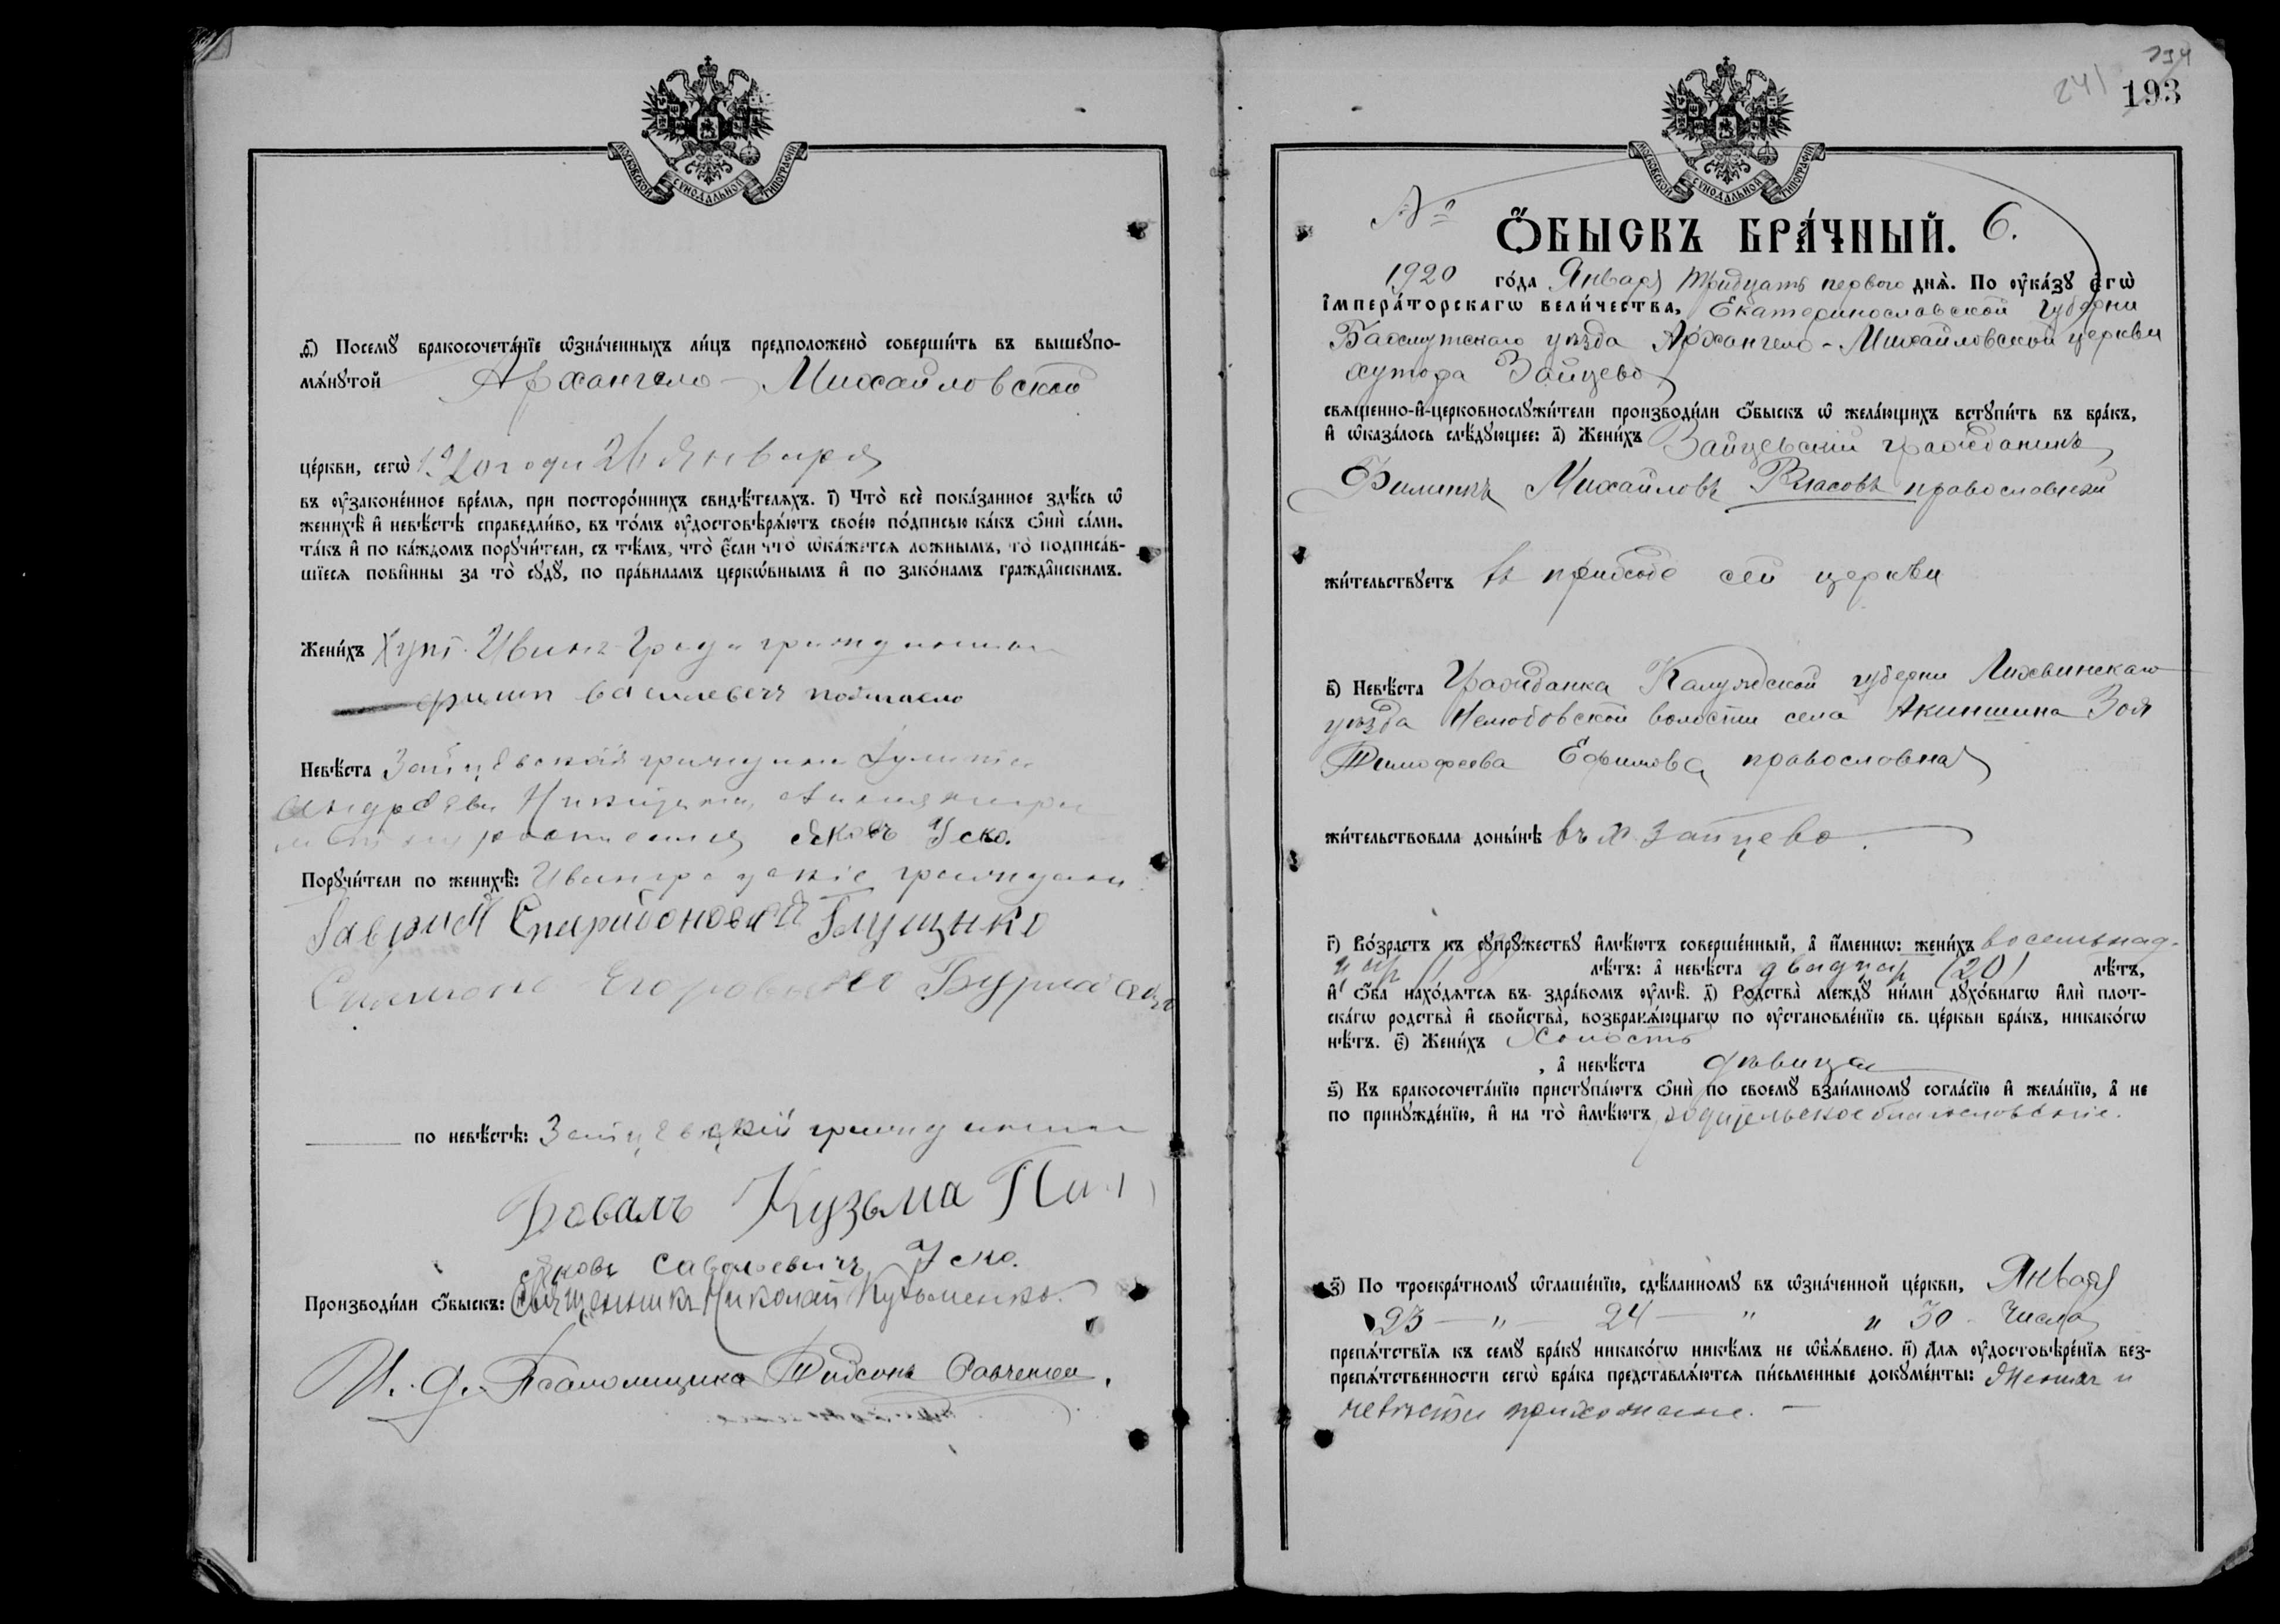 МОСКОВСКОЙ СѴНОДАЛЬНОЙ ТИПОГРАФІИ
ѳ҃) Посемꙋ бракосочета́нїе ѡ҆зна́ченныхъ ли́цъ предположено̀ соверши́ть въ вышеупо-
мѧ́нꙋтой Архангело-Михайловской
це́ркви, сегѡ̀ 1920 года 26 Января
въ ᲂу҆законе́нное вре́мѧ, при посторо́ннихъ свидѣ́телѧхъ. і҃) Что̀ всѐ пока́занное здѣ́сь ѡ҆
женихѣ̀ и҆ невѣ́стѣ справедли́во, въ то́мъ ᲂу҆достовѣрѧ́ютъ свое́ю по́дписью ка́къ ѻ҆нѝ са́ми,
та́къ и҆ по ка́ждомъ порꙋчи́тели, съ тѣ́мъ, что̀ є҆́сли что̀ ѡ҆ка́жетсѧ ло́жнымъ, то̀ подписа́в-
шїесѧ пови́нны за то̀ сꙋдꙋ̀, по пра́виламъ церко́внымъ и҆ по зако́намъ гражда́нскимъ.
Жени́хъ Хут. Иванъ-Града гражданин
Невѣ́ста Зайцевская гражданка
Яковъ Уско.
Порꙋчи́тели по женихѣ̀: Иванградскіе граждане
Гаврилъ Спиридоновъ Глущенко
Егоровъ
по невѣ́стѣ: Зайцевскій гражданин
Коваль Кузьма
Яковъ Савельевичъ Уско.
Производи́ли ѻ҆́быскъ: Священникъ Николай Кузьменко.
И. д. Псаломщика
241
193
МОСКОВСКОЙ СѴНОДАЛЬНОЙ ТИПОГРАФІИ
№
Ѻ҆́БЫСКЪ БРА́ЧНЫЙ. 6.
1920 го́да Января тридцать первого днѧ̀. По ᲂу҆ка́зꙋ є҆гѡ̀
і҆мпера́торскагѡ вели́чества, Екатеринославской губерни
Бахмутскаго уѣзда Архангело-Михайловской церкви
хутора Зайцево
свѧще́нно-и҆-церковнослꙋжи́тели производи́ли ѻ҆́быскъ ѡ҆ жела́ющихъ встꙋпи́ть въ бра́къ,
и҆ ѡ҆каза́лось слѣ́дꙋющее: а҃) Жени́хъ Зайцевский гражданинъ
Филиппъ Михайловъ Власовъ православный
жи́тельствꙋетъ въ приходе сей церкви
в҃) Невѣ́ста Гражданка Калужской губерни Лихвинскаго
уѣзда волости села Акиншина Зоя
Тимофеева Ефимова православная
жи́тельствовала доны́нѣ въ х. Зайцево.
г҃) Во́зрастъ къ сꙋпрꙋ́жествꙋ и҆мѣ́ютъ соверше́нный, а҆ и҆́меннѡ: жени́хъ восемьнад-
цать лѣ́тъ: а҆ невѣ́ста двадцать (20) лѣ́тъ,
и҆ ѻ҆́ба нахо́дѧтсѧ въ здра́вомъ ᲂу҆мѣ̀. д҃) Родства̀ междꙋ̀ ни́ми дꙋхо́внагѡ и҆лѝ плот-
ска́гѡ родства̀ и҆ сво́йства, возбранѧ́ющагѡ по ᲂу҆становле́нїю св. це́ркви бра́къ, никако́гѡ
нѣ́тъ. є҃) Жени́хъ Холостъ
, а҆ невѣ́ста дѣвица
ѕ҃) Къ бракосочета́нїю пристꙋпа́ютъ ѻ҆нѝ по своемꙋ̀ взаи́мномꙋ согла́сїю и҆ жела́нїю, а҆ не
по принꙋжде́нїю, и҆ на то̀ и҆мѣ́ютъ родительское благословеніе.
з҃) По троекра́тномꙋ ѡ҆глаше́нїю, сдѣ́ланномꙋ въ ѡ҆зна́ченной це́ркви, Января
23 — " — 24 — " и 30 числа
препѧ́тствїѧ къ семꙋ̀ бра́кꙋ никако́гѡ никѣ́мъ не ѡ҆б̾ѧ́влено. и҃) Длѧ ᲂу҆достовѣре́нїѧ без-
препѧ́тственности сегѡ̀ бра́ка представлѧ́ютсѧ пи́сьменные докꙋме́нты: Жених и
невѣста прихожане. —